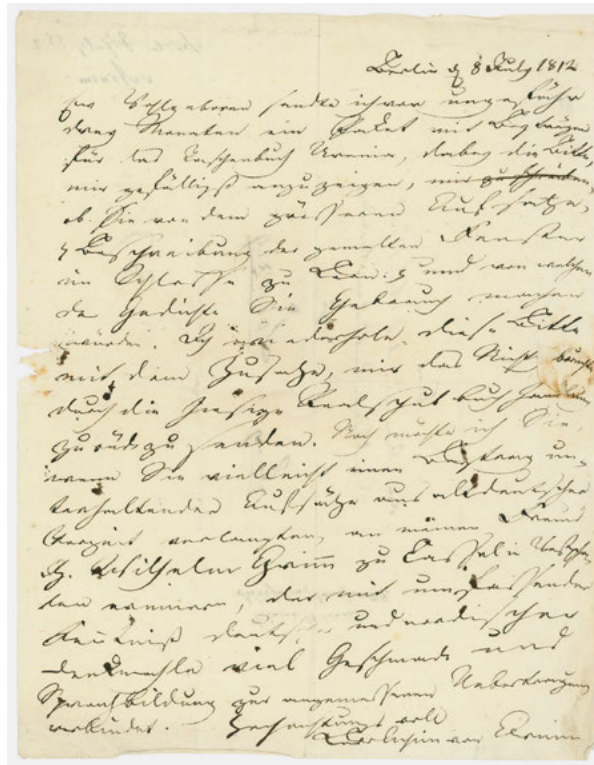 Berlin d 8 July 1812
Ew Wohlgeboren sandte ich vor ungefähr
drey Monaten ein Paket mit Beyträgen
für das Taschenbuch Urania, dabey die Bitte,
mir gefälligst anzuzeigen, mir zu schreiben,
ob Sie von dem grösseren Aufsatze,
Beschreibung der gemalten Fenster
im Schlosse zu und von welchen
der Gedichte Sie Gebrauch machen
würden. Ich wiederhole diese Bitte
mit dem Zusatze, mir das Nicht
durch die hiesige Realschulbuchhandlung
zurückzusenden. Noch möchte ich Sie,
wenn Sie vielleicht einen Beytrag un-
terhaltender Aufsätze aus altdeutscher
Vorzeit verlangten, an meinen Freund
H. Wilhelm Grimm zu Cassel in Westpha-
len erinnern, der mit umfassender
Kenntniß deutscher und nordischer
Denkmahle viel Geschmack und
Sprachbildung zur angemessenen Uebertragung
verbindet. Hochachtungsvoll
Achim von Arnim